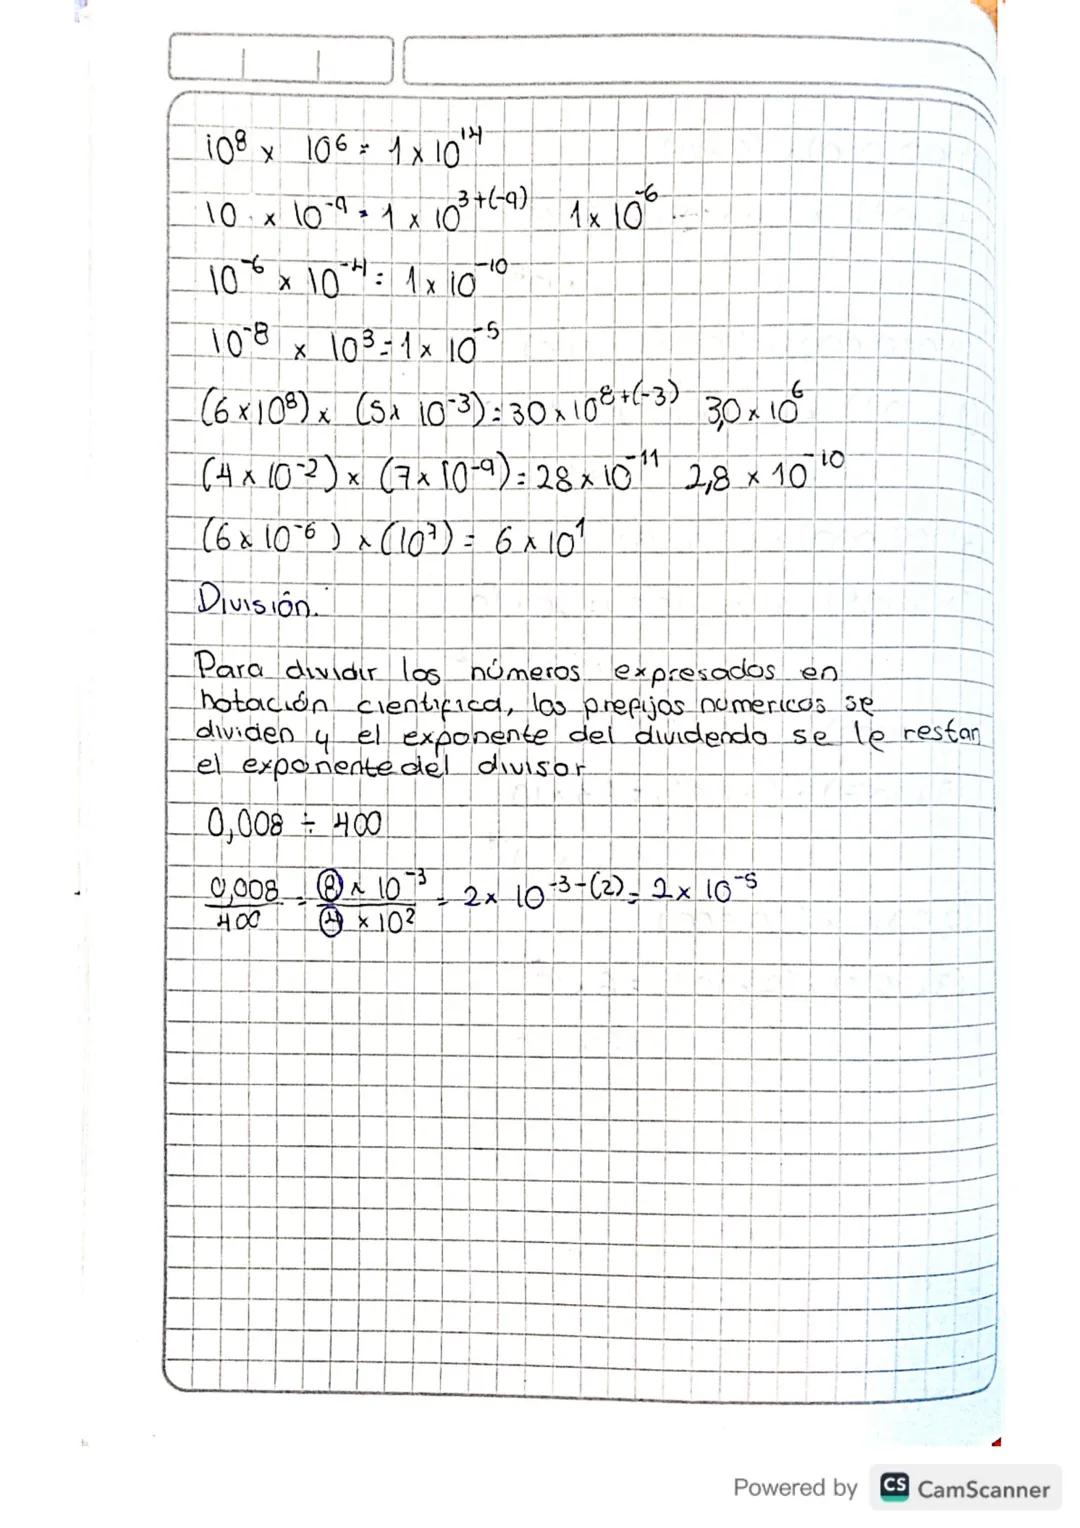 10⁸ x 10⁶ = 1 x 10¹⁴
10 x 10⁻⁹ = 1 x 10³⁺⁽⁻⁹⁾ 1 x 10⁻⁶
10⁻⁶ x 10⁻⁴ = 1 x 10⁻¹⁰
10⁻⁸ x 10³ = 1 x 10⁻⁵
(6 x 10⁸) x (5 x 10⁻³) = 30 x 10⁸⁺⁽⁻³⁾ 3,0 x 10⁶
(4 x 10⁻²) x (7 x 10⁻⁹) = 28 x 10⁻¹¹ 2,8 x 10⁻¹⁰
(6 x 10⁻⁶) x (10⁷) = 6 x 10¹
División.
Para dividir los números expresados en
notación cientifica, los prefijos numericos se
dividen y el exponente del dividendo se le restan
el exponente del divisor
0,008 ÷ 400
0,008/400 = 8 x 10⁻³/4 x 10² = 2 x 10⁻³⁻⁽²⁾ = 2 x 10⁻⁵
Powered by CS CamScanner